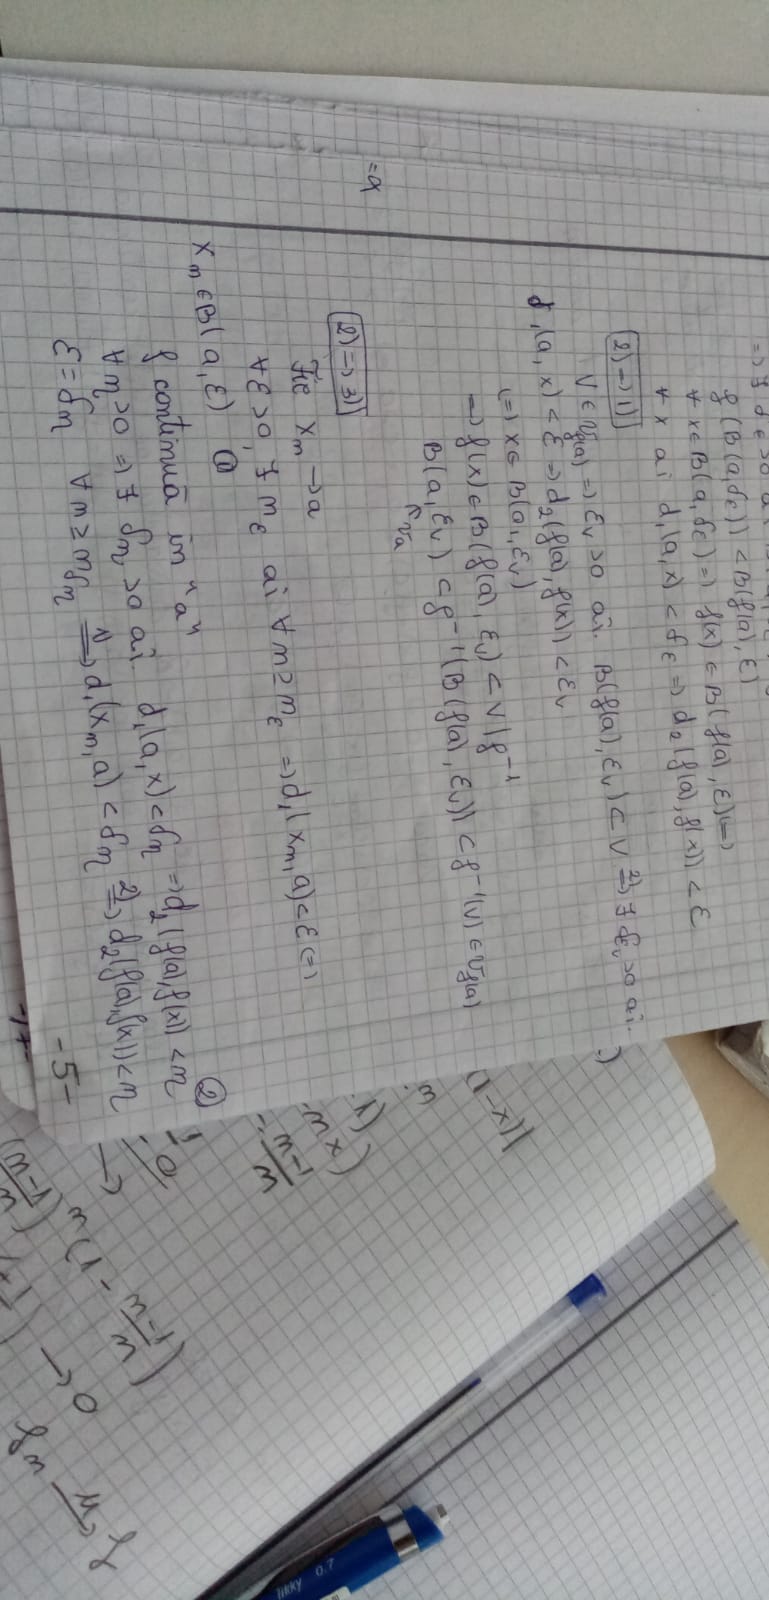 f(B(a,δε)) ⊂ B(f(a), ε)
∀ x∈B(a,δε) => f(x) ∈ B(f(a), ε) (=>
∀ x aî d₁(a,x) < δε => d₂(f(a), f(x)) < ε
2) => 1)
V ∈ 𝒱f(a) => εv>0 aî. B(f(a), εv) ⊂ V 2)=> ∃ δεv>0 aî.
d₁(a,x) < ε => d₂(f(a), f(x)) < εv
(=) x∈ B(a, εv)
=> f(x) ∈ B(f(a), εv) ⊂ V | f⁻¹
B(a, εv) ⊂ f⁻¹(B(f(a), εv)) ⊂ f⁻¹(V) ∈ 𝒱f(a)
𝒱a
=a
2) => 3)
Fie xn → a
∀ε>0, ∃ nε aî ∀n≥nε => d₁(xn, a)<ε (=)
xn∈B(a, ε) ①
f continuă în "a"
∀η>0 => ∃ δη>0 aî. d₁(a,x)<δη => d₂(f(a), f(x))<η ②
ε=δη ∀n≥nδη 1)=> d₁(xn, a)<δη 2)=> d₂(f(a), f(x))<η
-5-
-17-
(1-x)|
n
nx)
n-1/n
→
n(1 - n-1/n)
(n-1/n)
→ 0
fn u→ f